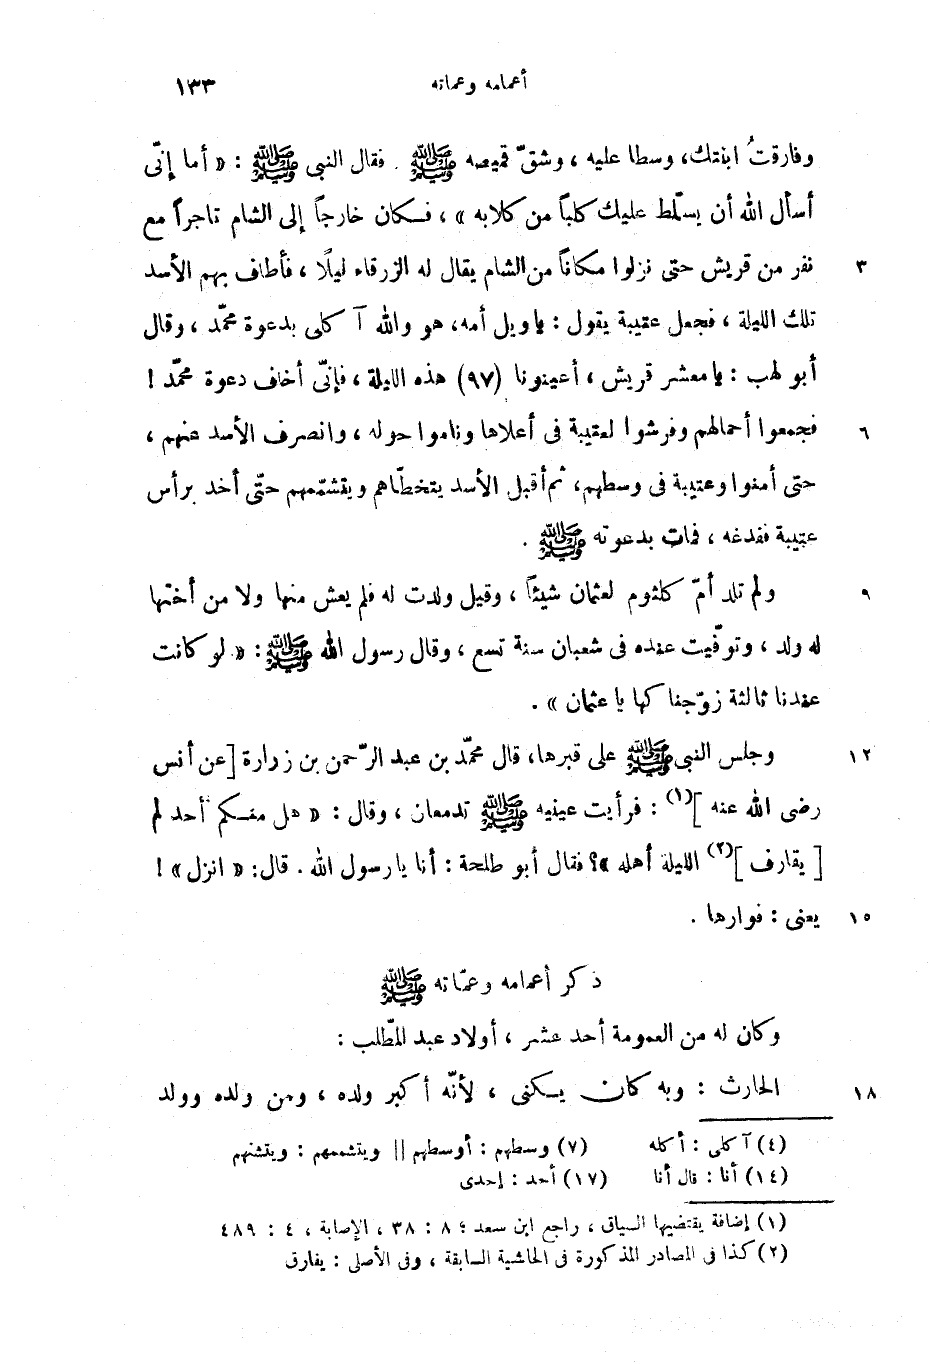 أعمامه وعماته ١٣٣
وفارقتُ ابنتك، وسطا عليه ، وشقّ قميصه ﷺ . فقال النبى ﷺ : « أما إنّى
أسأل الله أن يسلّط عليك كلباً من كلابه » ، فكان خارجاً إلى الشام تاجراً مع
٣ نفر من قريش حتى نزلوا مكاناً من الشام يقال له الزرقاء ليلًا ، فأطاف بهم الأسد
تلك الليلة ، فجعل عقيبة يقول : ياويل أمه، هو والله آ كلى بدعوة محمّد ، وقال
أبو لهب : يا معشر قريش ، أعينونا (٩٧) هذه الليلة ، فإنّى أخاف دعوة محمّد !
٦ فجمعوا أحمالهم وفرشوا لعقيبة فى أعلاها وناموا حوله ، وانصرف الأسد عنهم ،
حتى أمنوا وعتيبة فى وسطهم، ثم أقبل الأسد يتخطّاهم ويتشمّمهم حتّى أخد برأس
عتيبة ففدغه ، فمات بدعوته ﷺ .
٩ ولم تلد أمّ كلثوم لعثمان شيئاً ، وقيل ولدت له فلم يعش منها ولا من أختها
له ولد ، وتوفّيت عنده فى شعبان سنة تسع ، وقال رسول الله ﷺ : « لو كانت
عندنا ثالثة زوّجنا كها يا عثمان » .
١٢ وجلس النبى ﷺ على قبرها، قال محمّد بن عبد الرّحمن بن زرارة [عن أنس
رضى الله عنه ](١) : فرأيت عينيه ﷺ تدمعان ، وقال : « هل منكم أحد لم
[ يقارف ](٢) الليلة أهله »؟ فقال أبو طلحة : أنا يا رسول الله . قال: « انزل » !
١٥ يعنى : فوارها .
ذكر أعمامه وعمّاته ﷺ
وكان له من العمومة أحد عشر ، أولاد عبد المطّلب :
١٨ الحارث : وبه كان يكنى ، لأنّه أكبر ولده ، ومن ولده وولد
(٤) آ كلى : أكله (٧) وسطهم : أوسطهم || ويتشممهم : ويتشنهم
(١٤) أنا : قال أنا (١٧) أحد : إحدى
(١) إضافة يقتضيها السياق ، راجع ابن سعد ؛ ٨ : ٣٨ ، الإصابة ، ٤ : ٤٨٩
(٢) كذا فى المصادر المذكورة فى الحاشية السابقة ، وفى الأصل : يفارق